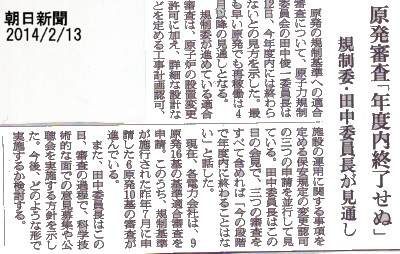 朝日新聞
2014/2/13
原発審査「年度内終了せぬ」
規制委・田中委員長が見通し
原発の規制基準への適合
審査について、原子力規制
委員会の田中俊一委員長は
12日、今年度内には終わら
ないとの見方を示した。最
も早い原発でも再稼働は4
月以降の見通しとなる。
規制委が進めている適合
審査は、原子炉の設置変更
許可に加え、詳細な設計な
どを定める工事計画認可、
施設の運用に関する事項を
定める保安規定の変更認可
の三つの申請を並行して見
ている。田中委員長はこの
日の会見で、三つの審査を
すべて含めれば「今の段階
で年度内に終わることはな
い」と話した。
現在、各電力会社は、9
原発16基の基準適合審査を
申請。このうち、規制基準
が施行された昨年7月に申
請した6原発10基の審査が
進んでいる。
また、田中委員長はこの
日、審査の過程で、科学技
術的な面での意見募集や公
聴会を実施する方針を示し
た。今後、どのような形で
実施するか検討する。